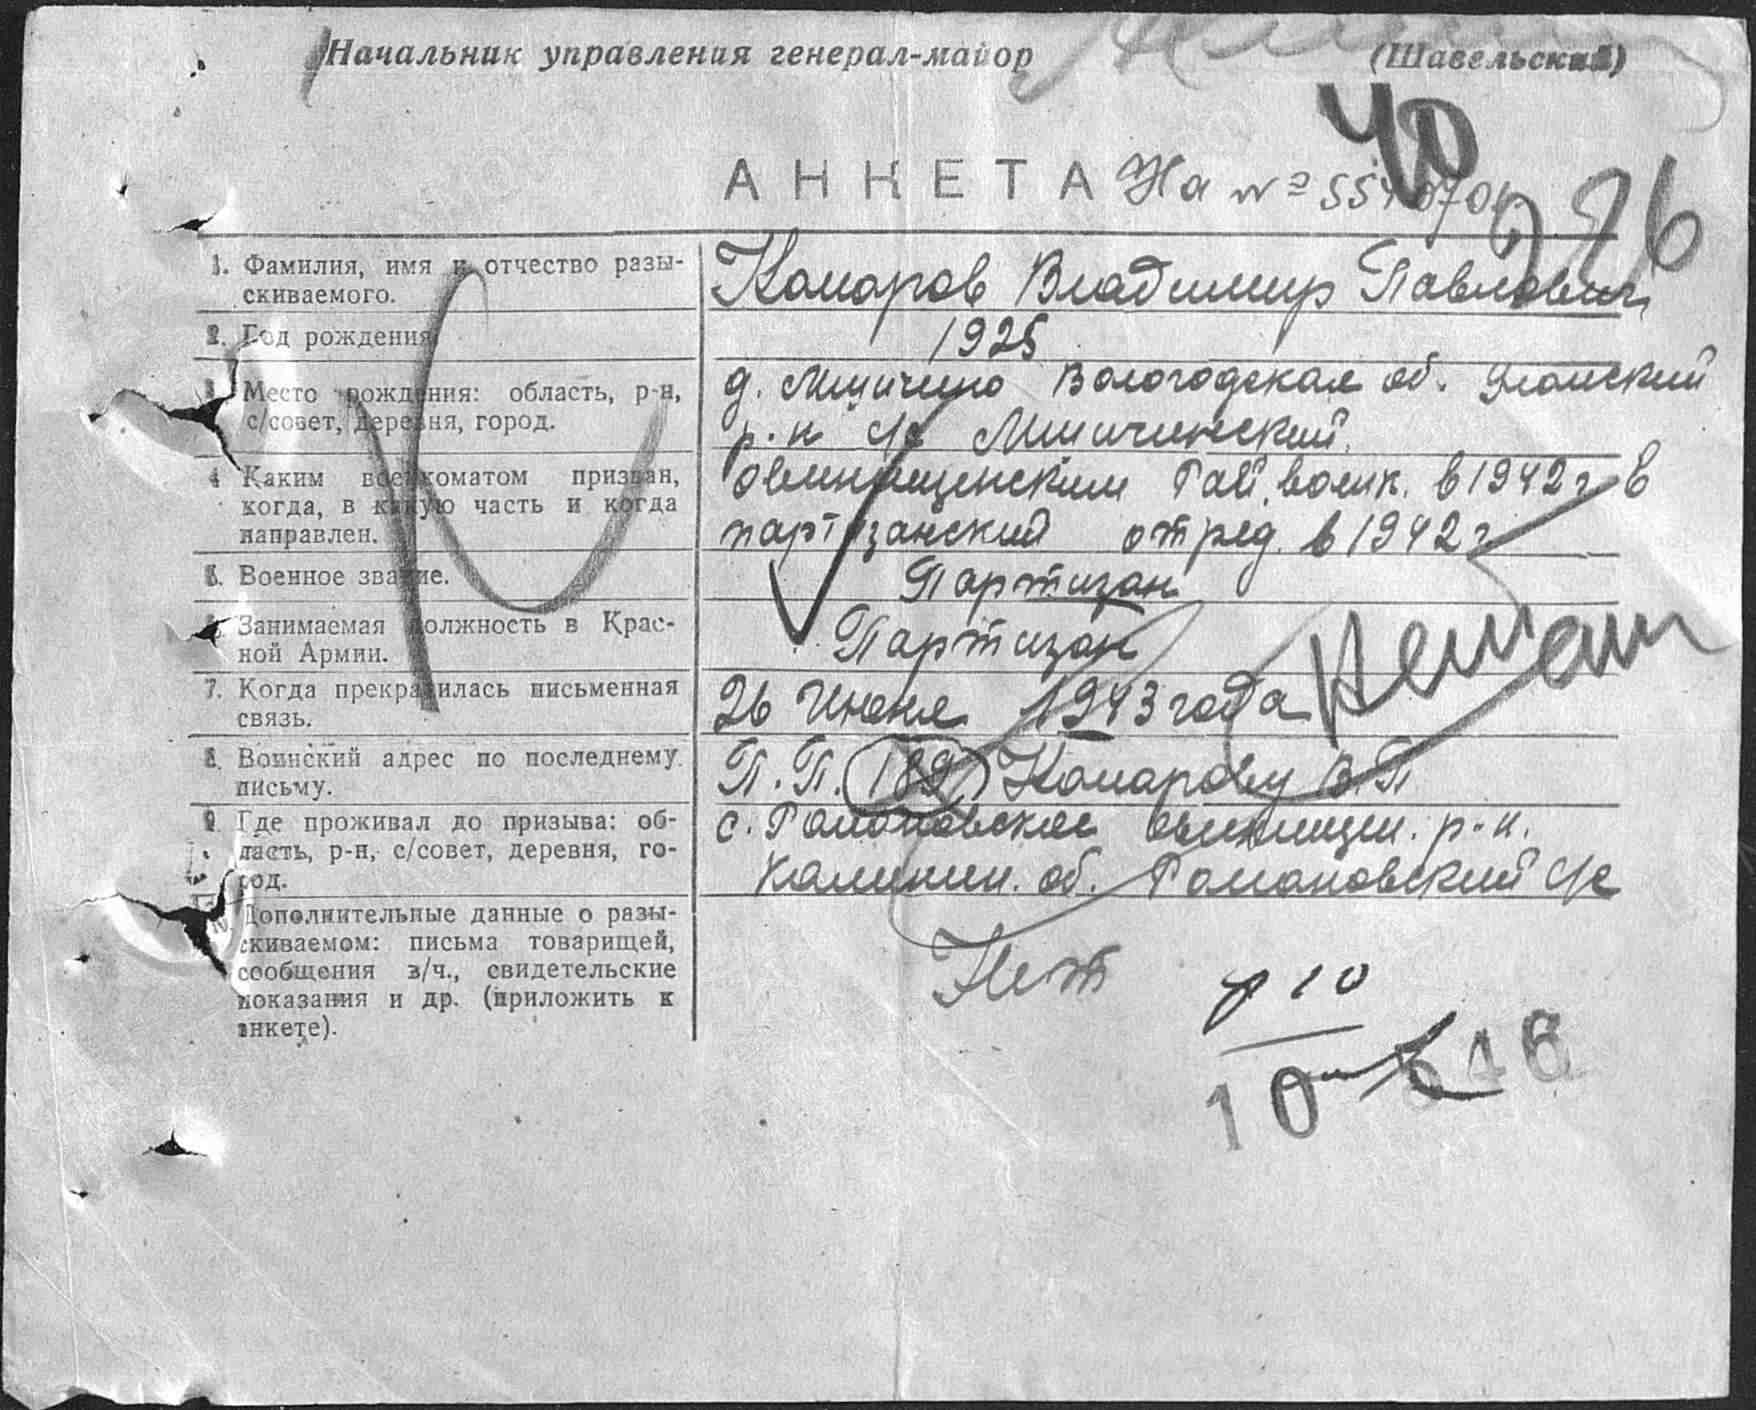 Начальник управления генерал-майор (Шавельский)
40
АНКЕТА На №
276
1. Фамилия, имя и отчество разы-
скиваемого.
Комаров Владимир Павлович
2. Год рождения
1925
3. Место рождения: область, р-н,
с/совет, деревня, город.
д. Мшичино Вологодская об.
р-н с/с Мшичинский
4. Каким военкоматом призван,
когда, в какую часть и когда
направлен.
Овинищенским Рай. воинк. в 1942 г в
партизанский отряд. в 1942 г
5. Военное звание.
Партизан
6. Занимаемая должность в Крас-
ной Армии.
Партизан
7. Когда прекратилась письменная
связь.
26 Июня 1943 года
8. Воинский адрес по последнему
письму.
П.П. 189 Комарову В П
9. Где проживал до призыва: об-
ласть, р-н, с/совет, деревня, го-
род.
с. Романовское овинищен. р-н.
Калинин. об. Романовский с/с
10. Дополнительные данные о разы-
скиваемом: письма товарищей,
сообщения в/ч., свидетельские
показания и др. (приложить к
анкете).
Нет
10
646